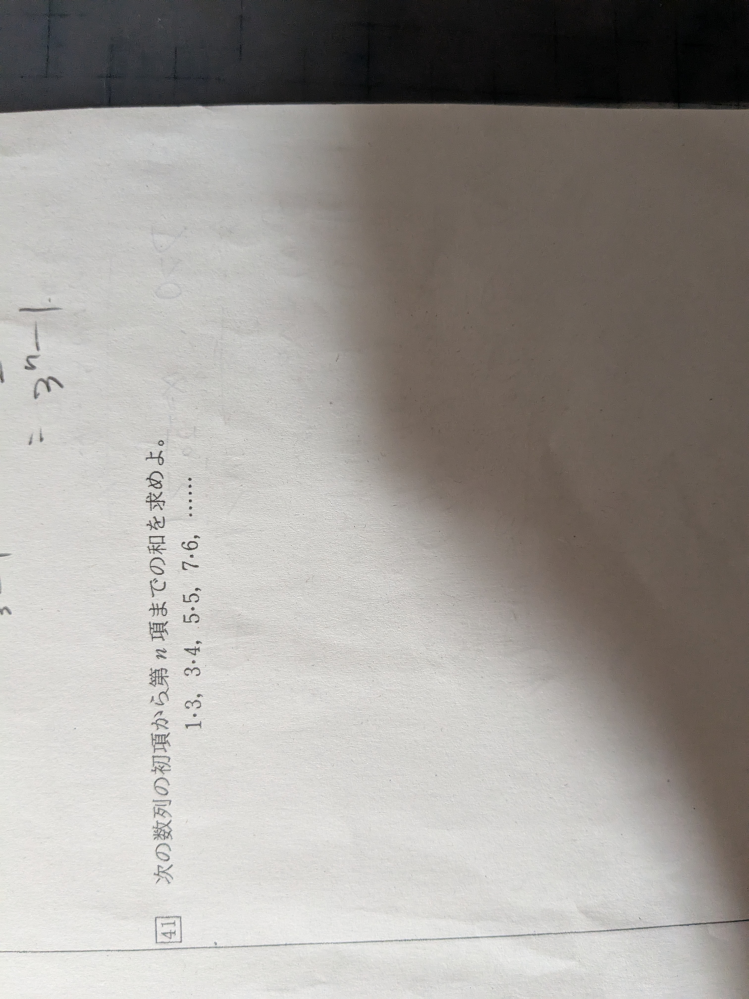 = 3ⁿ-1
41 次の数列の初項から第n項までの和を求めよ。
1·3, 3·4, 5·5, 7·6, ……